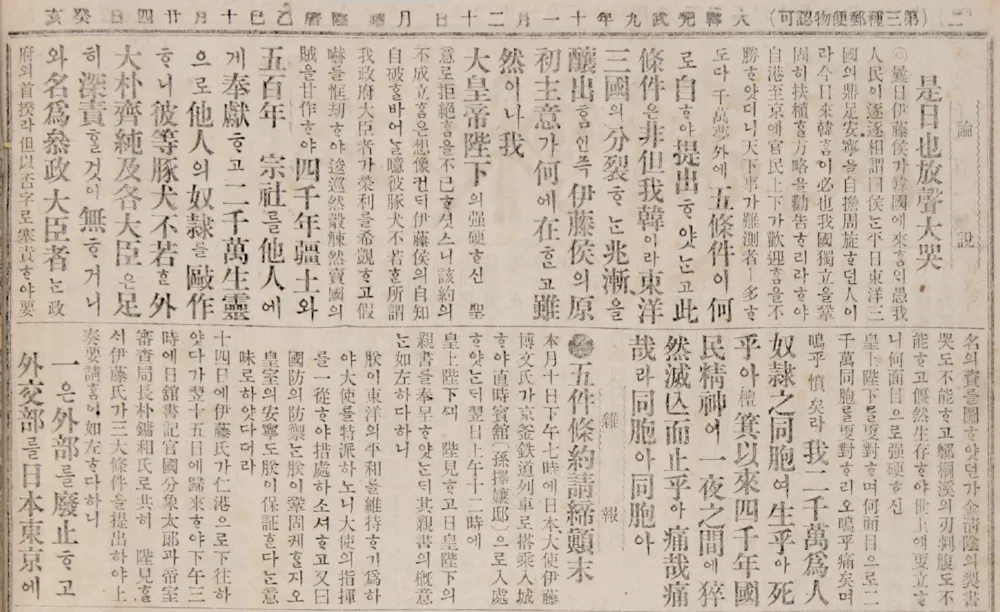 (二) (第三種郵便物認可) 大韓光武九年十一月二十日 月曜 陰曆乙巳十月廿四日癸亥
論說
是日也放聲大哭
◎曩日伊藤侯가韓國에來ᄒᆞᆷᄋᆡ愚我
人民이逐逐相謂曰侯ᄂᆞᆫ平日東洋三
國의鼎足安寧을自擔周旋ᄒᆞ던人이
라今日來韓ᄒᆞᆷ이必也我國獨立을鞏
固히扶植ᄒᆞᆯ方略을勸告ᄒᆞ리라ᄒᆞ야
自港至京에官民上下가歡迎ᄒᆞᆷ을不
勝ᄒᆞ얏더니天下事가難測者ㅣ多ᄒᆞ
도다千萬夢外에五條件이何
로自ᄒᆞ야提出ᄒᆞ얏ᄂᆞᆫ고此
條件은非但我韓이라東洋
三國의分裂ᄒᆞᄂᆞᆫ兆漸을
釀出ᄒᆞᆷ인즉伊藤侯의原
初主意가何에在ᄒᆞᆫ고雖
然이나我
大皇帝陛下의强硬ᄒᆞ신 聖
意로拒絶ᄒᆞᆷ을不已ᄒᆞ셧스니該約의
不成立ᄒᆞᆷ은想像컨ᄃᆡ伊藤侯의自知
自破ᄒᆞᆯ바어ᄂᆞᆯ噫彼豚犬不若ᄒᆞᆫ所謂
我政府大臣者가榮利를希覬ᄒᆞ고假
嚇를恇刼ᄒᆞ야逡巡然觳觫然賣國의
賊을甘作ᄒᆞ야四千年疆土와
五百年 宗社를他人에
게奉獻ᄒᆞ고二千萬生靈
으로他人의奴隷를敺作
ᄒᆞ니彼等豚犬不若ᄒᆞᆫ外
大朴齊純及各大臣은足
히深責ᄒᆞᆯ것이無ᄒᆞ거니
와名爲叅政大臣者ᄂᆞᆫ政
府의首揆라但以否字로塞責ᄒᆞ야要
名의資를圖ᄒᆞ얏던가金淸陰의裂書
哭도不能ᄒᆞ고鄭桐溪의刃剚腹도不
能ᄒᆞ고偃然生存ᄒᆞ야世上에更立ᄒᆞ
니何面目으로强硬ᄒᆞ신
皇上陛下를更對ᄒᆞ며何面目으로二
千萬同胞를更對ᄒᆞ리오嗚乎痛矣며
嗚乎憤矣라我二千萬爲人
奴隷之同胞여生乎아死
乎아檀箕以來四千年國
民精神이一夜之間에猝
然滅亡而止乎아痛哉痛
哉라同胞아同胞아
雜報
●五件條約請締顚末
本月十日下午七時에日本大使伊藤
博文氏가京釜鉄道列車로搭乘入城
ᄒᆞ야直時賓舘(孫擇孃邸)으로入處
ᄒᆞ얏ᄂᆞᆫᄃᆡ翌日上午十二時에
皇上陛下ᄭᅴ 陛見ᄒᆞ고日皇陛下의
親書를奉呈ᄒᆞ얏ᄂᆞᆫᄃᆡ其親書의槪意
ᄂᆞᆫ如左하다하니
朕이東洋의平和를維持하기爲하
야大使를特派하노니大使의指揮
를一從ᄒᆞ야措處하소셔ᄒᆞ고又曰
國防의防禦ᄂᆞᆫ朕이鞏固케ᄒᆞᆯ지오
皇室의安寧도朕이保証ᄒᆞᆫ다ᄂᆞᆫ意
味로하얏다더라
十四日에伊藤氏가仁港으로下往하
얏다가翌十五日에歸來ᄒᆞ야下午三
時에日舘書記官國分象太郞과帝室
審査局長朴鏞和氏로共히 陛見ᄒᆞᆯ
ᄉᆡ伊藤氏가三大條件을提出하야上
奏要請ᄒᆞᆷ이如左ᄒᆞ다하니
一은外部를廢止ᄒᆞ고
外交部를日本東京에